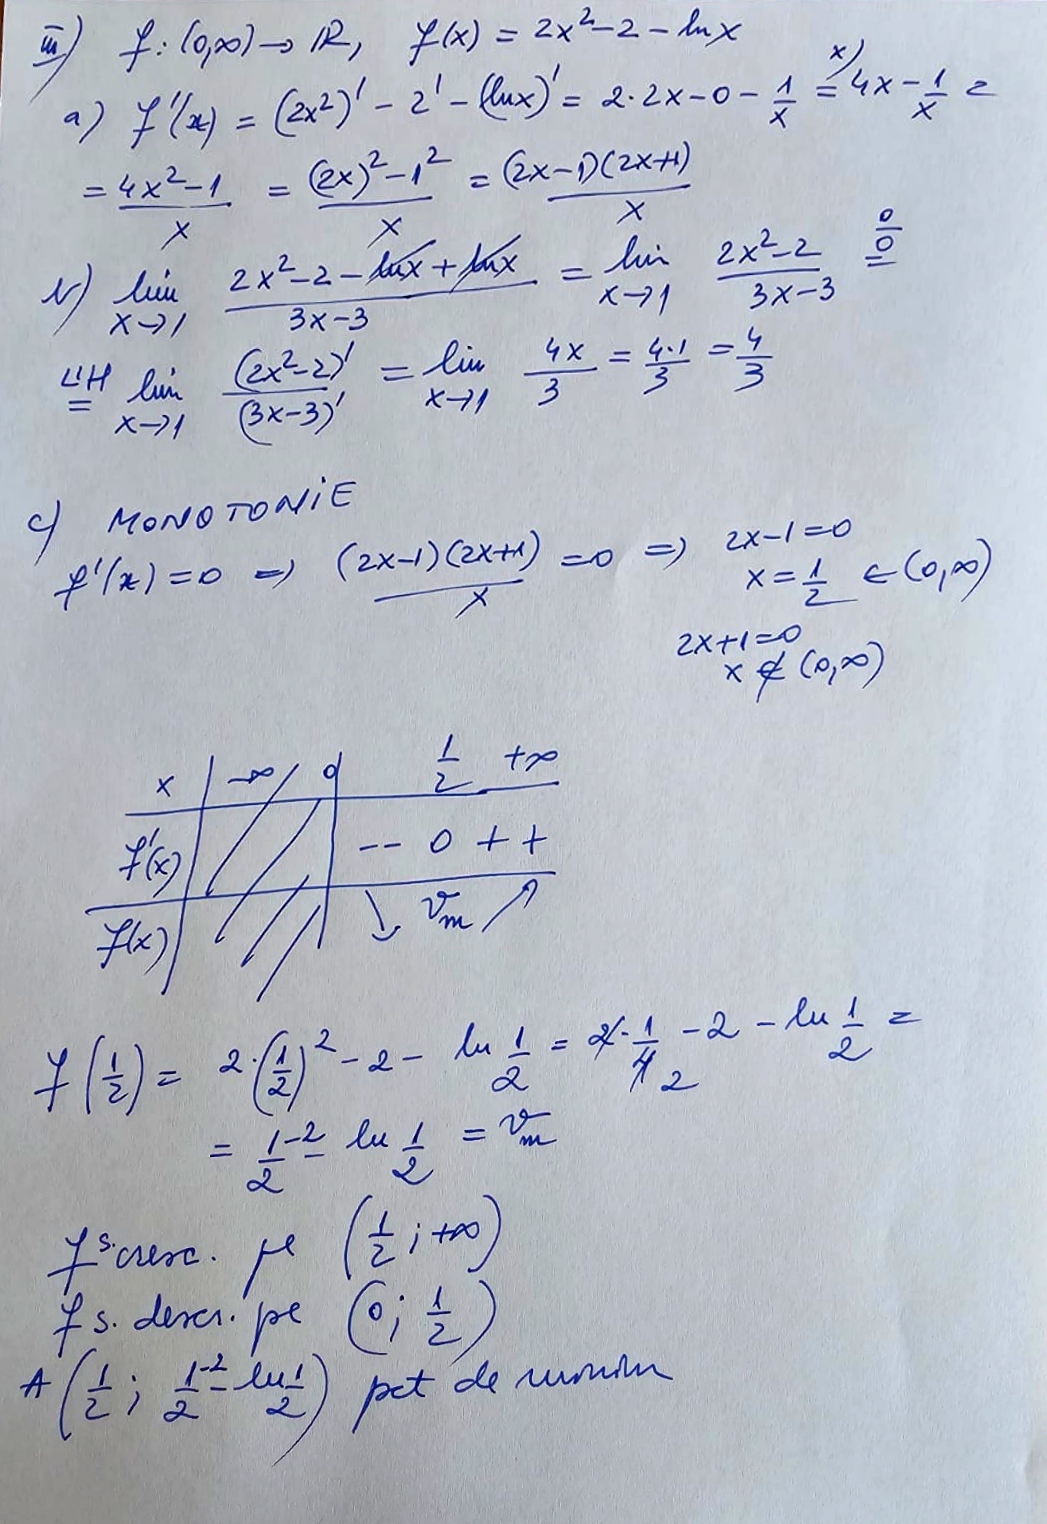 iii) f: (0,∞) → ℝ, f(x) = 2x² - 2 - ln x
a) f'(x) = (2x²)' - 2' - (ln x)' = 2·2x - 0 - 1/x = ˣ⁾4x - 1/x =
= (4x² - 1)/x = ((2x)² - 1²)/x = ((2x-1)(2x+1))/x
b) lim x→1 (2x² - 2 - ln x + ln x)/(3x - 3) = lim x→1 (2x² - 2)/(3x - 3) 0/0 =
L'H = lim x→1 (2x² - 2)'/(3x - 3)' = lim x→1 4x/3 = 4·1/3 = 4/3
c) MONOTONIE
f'(x) = 0 => ((2x-1)(2x+1))/x = 0 => 2x - 1 = 0
x = 1/2 ∈ (0,∞)
2x + 1 = 0
x ∉ (0,∞)
x | -∞ / 0 | 1/2 +∞
f'(x) | - - 0 + +
f(x) | ↘ vm ↗
f(1/2) = 2·(1/2)² - 2 - ln 1/2 = 2·1/4 2 - 2 - ln 1/2 =
= 1/2 - 2 - ln 1/2 = vm
f s. cresc. pe (1/2 ; +∞)
f s. descr. pe (0; 1/2)
A (1/2 ; 1/2 - 2 - ln 1/2) pct de minim